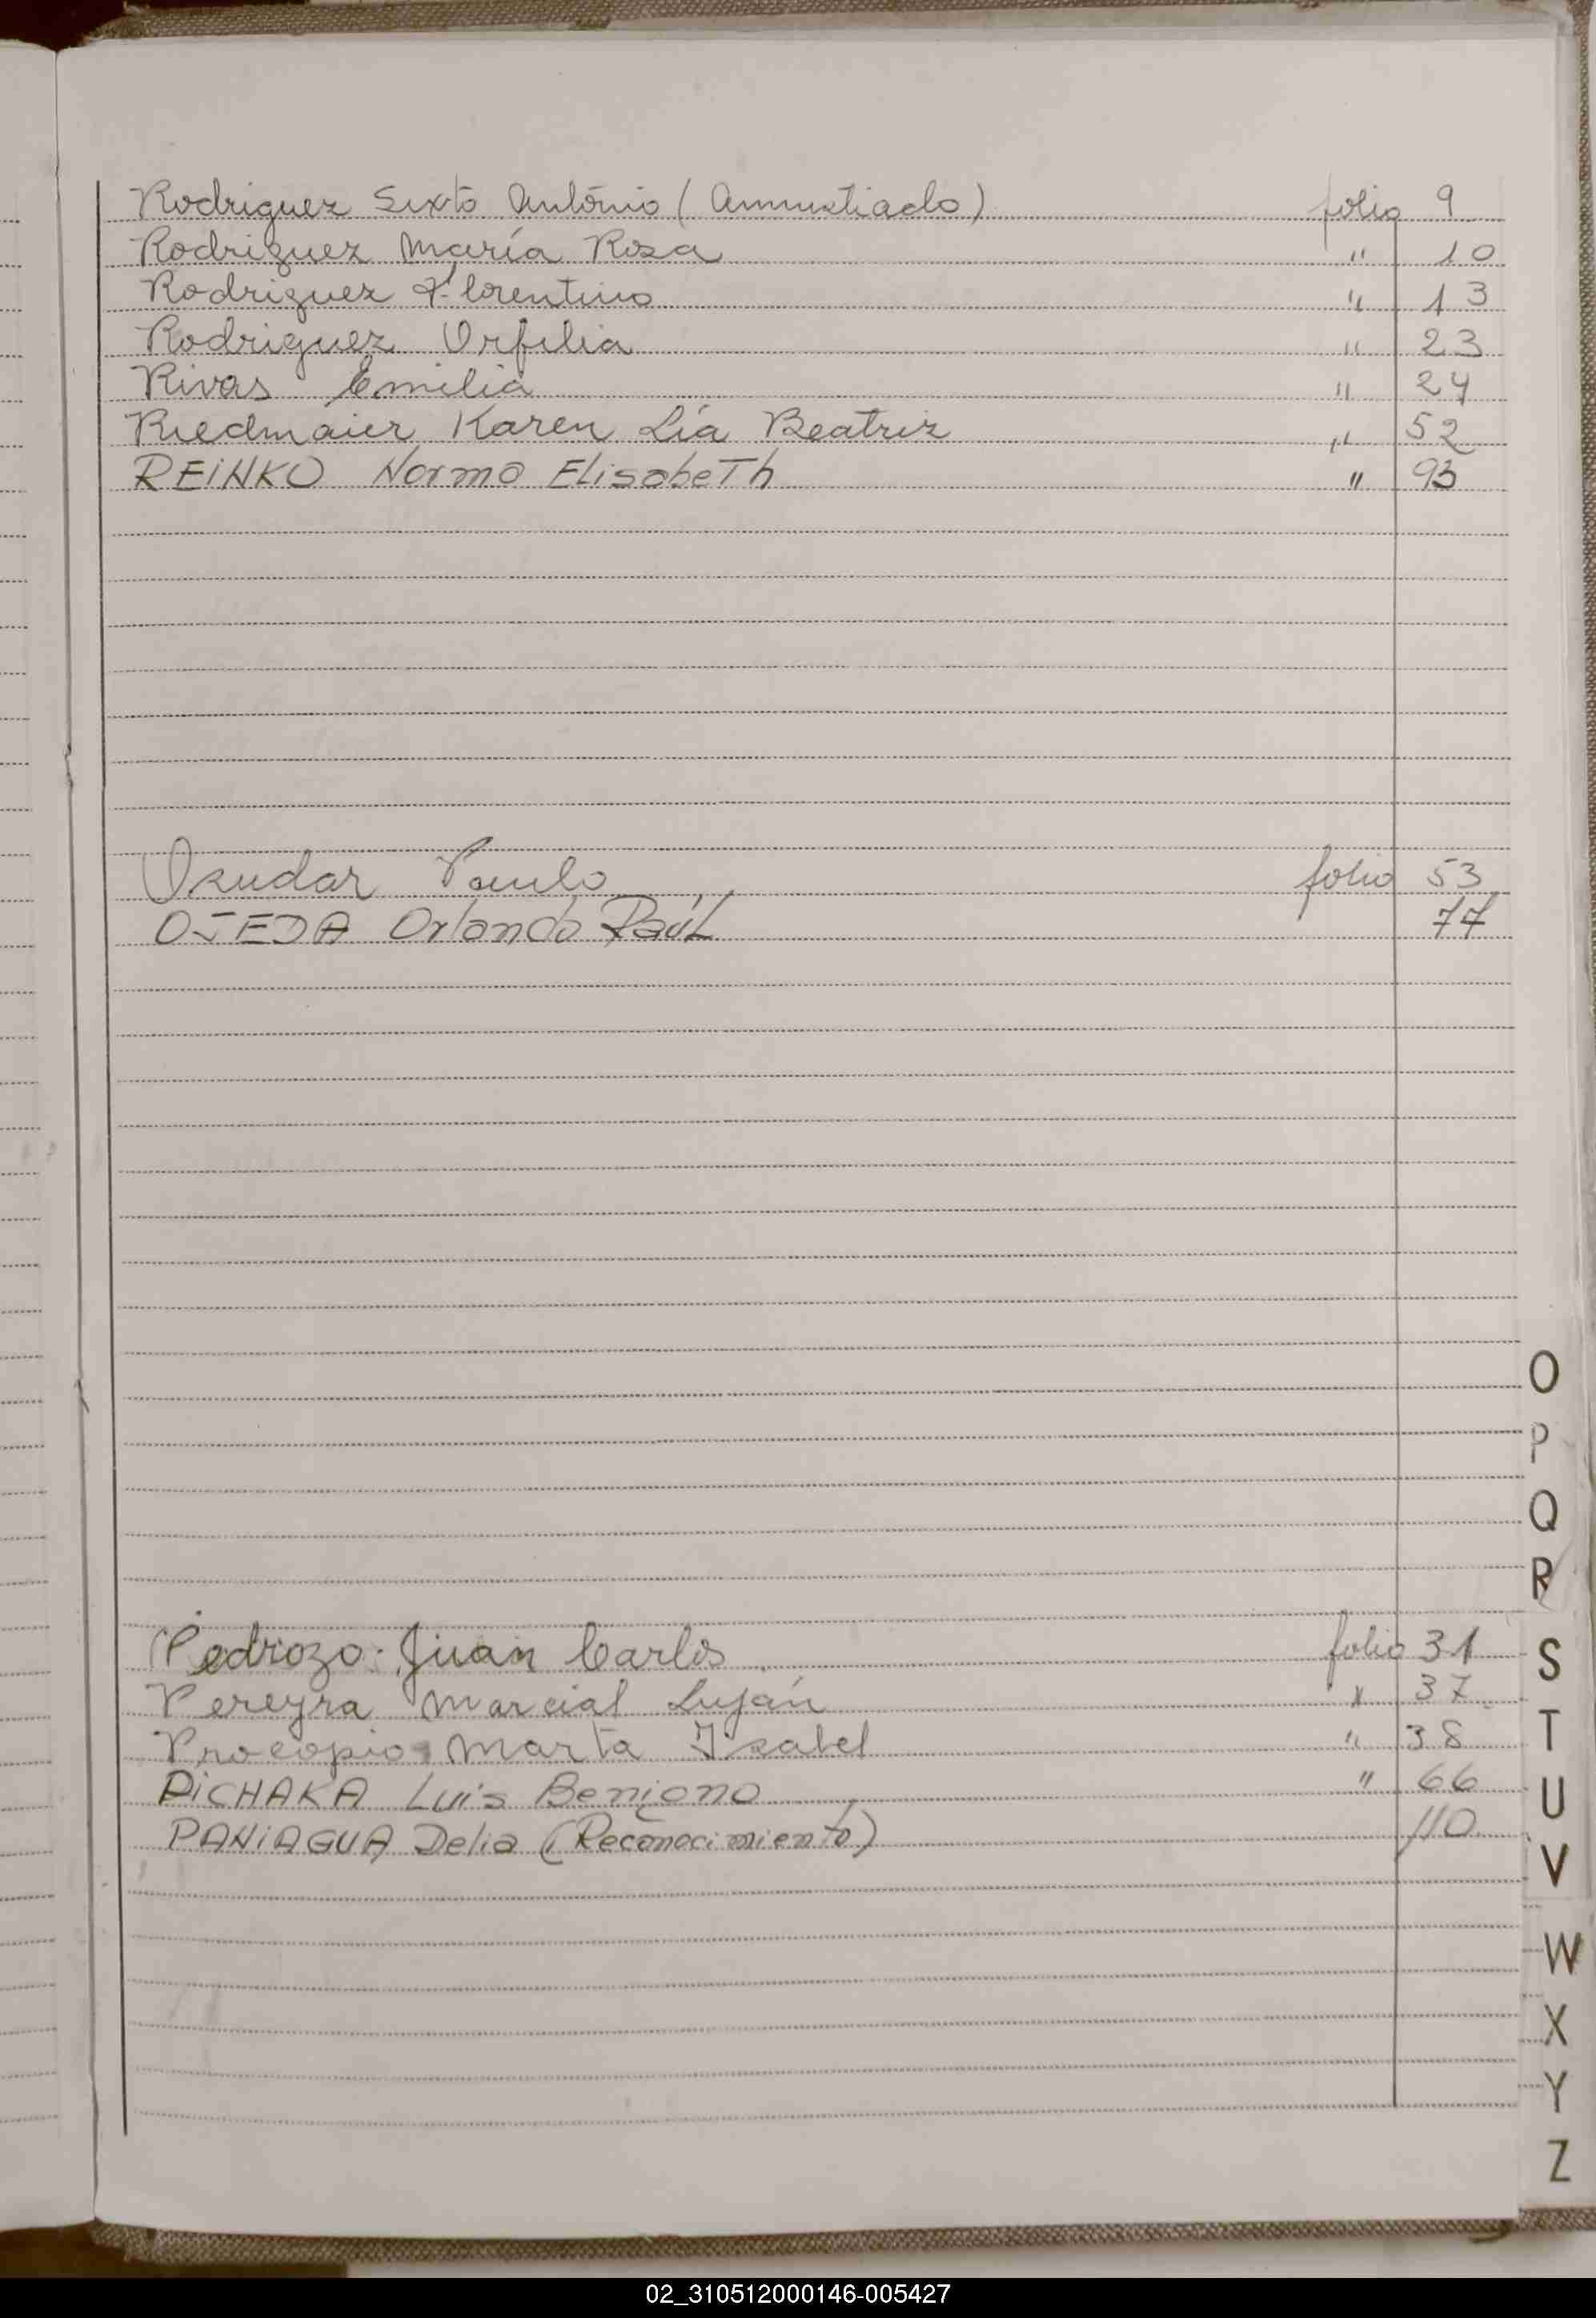 Rodriguez Sixto António (Amnistiado) folio 9
Rodriguez María Rosa " 10
Rodriguez Florentino " 13
Rodriguez Orfilia " 23
Rivas Emilia " 24
Riedmaier Karen Lía Beatriz " 52
REINKO Norma Elisabeth " 93
Paulo folio 53
OJEDA Orlando Raúl 77
Pedrozo Juan Carlos folio 31
Pereyra Marcial Luján " 37
Procopio Marta Isabel " 38
PiCHAKA Luis Benigno " 66
PANiAGUA Delia (Reconocimiento) 110
O
P
Q
R
S
T
U
V
W
X
Y
Z
02_310512000146-005427